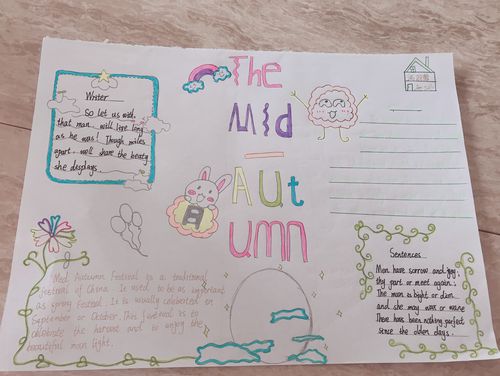 The
Mid
—
Autumn
Writer
So let us wish
that man will live long
as he was! Though miles
apart, well share the beaty
she displays.
Med Autumn Festival is a traditional
festival of China. It used to be as important
as spring Festival. It is usually celebrated in
September or October. This festival is to
celebrate the harvest and to enjoy the
beautiful moon light.
Sentences
Men have sorrow and joy,
thy part or meet again.
The moon is bight or dim
and she may wax or wane
There has been nothing perfect
since the olden days.